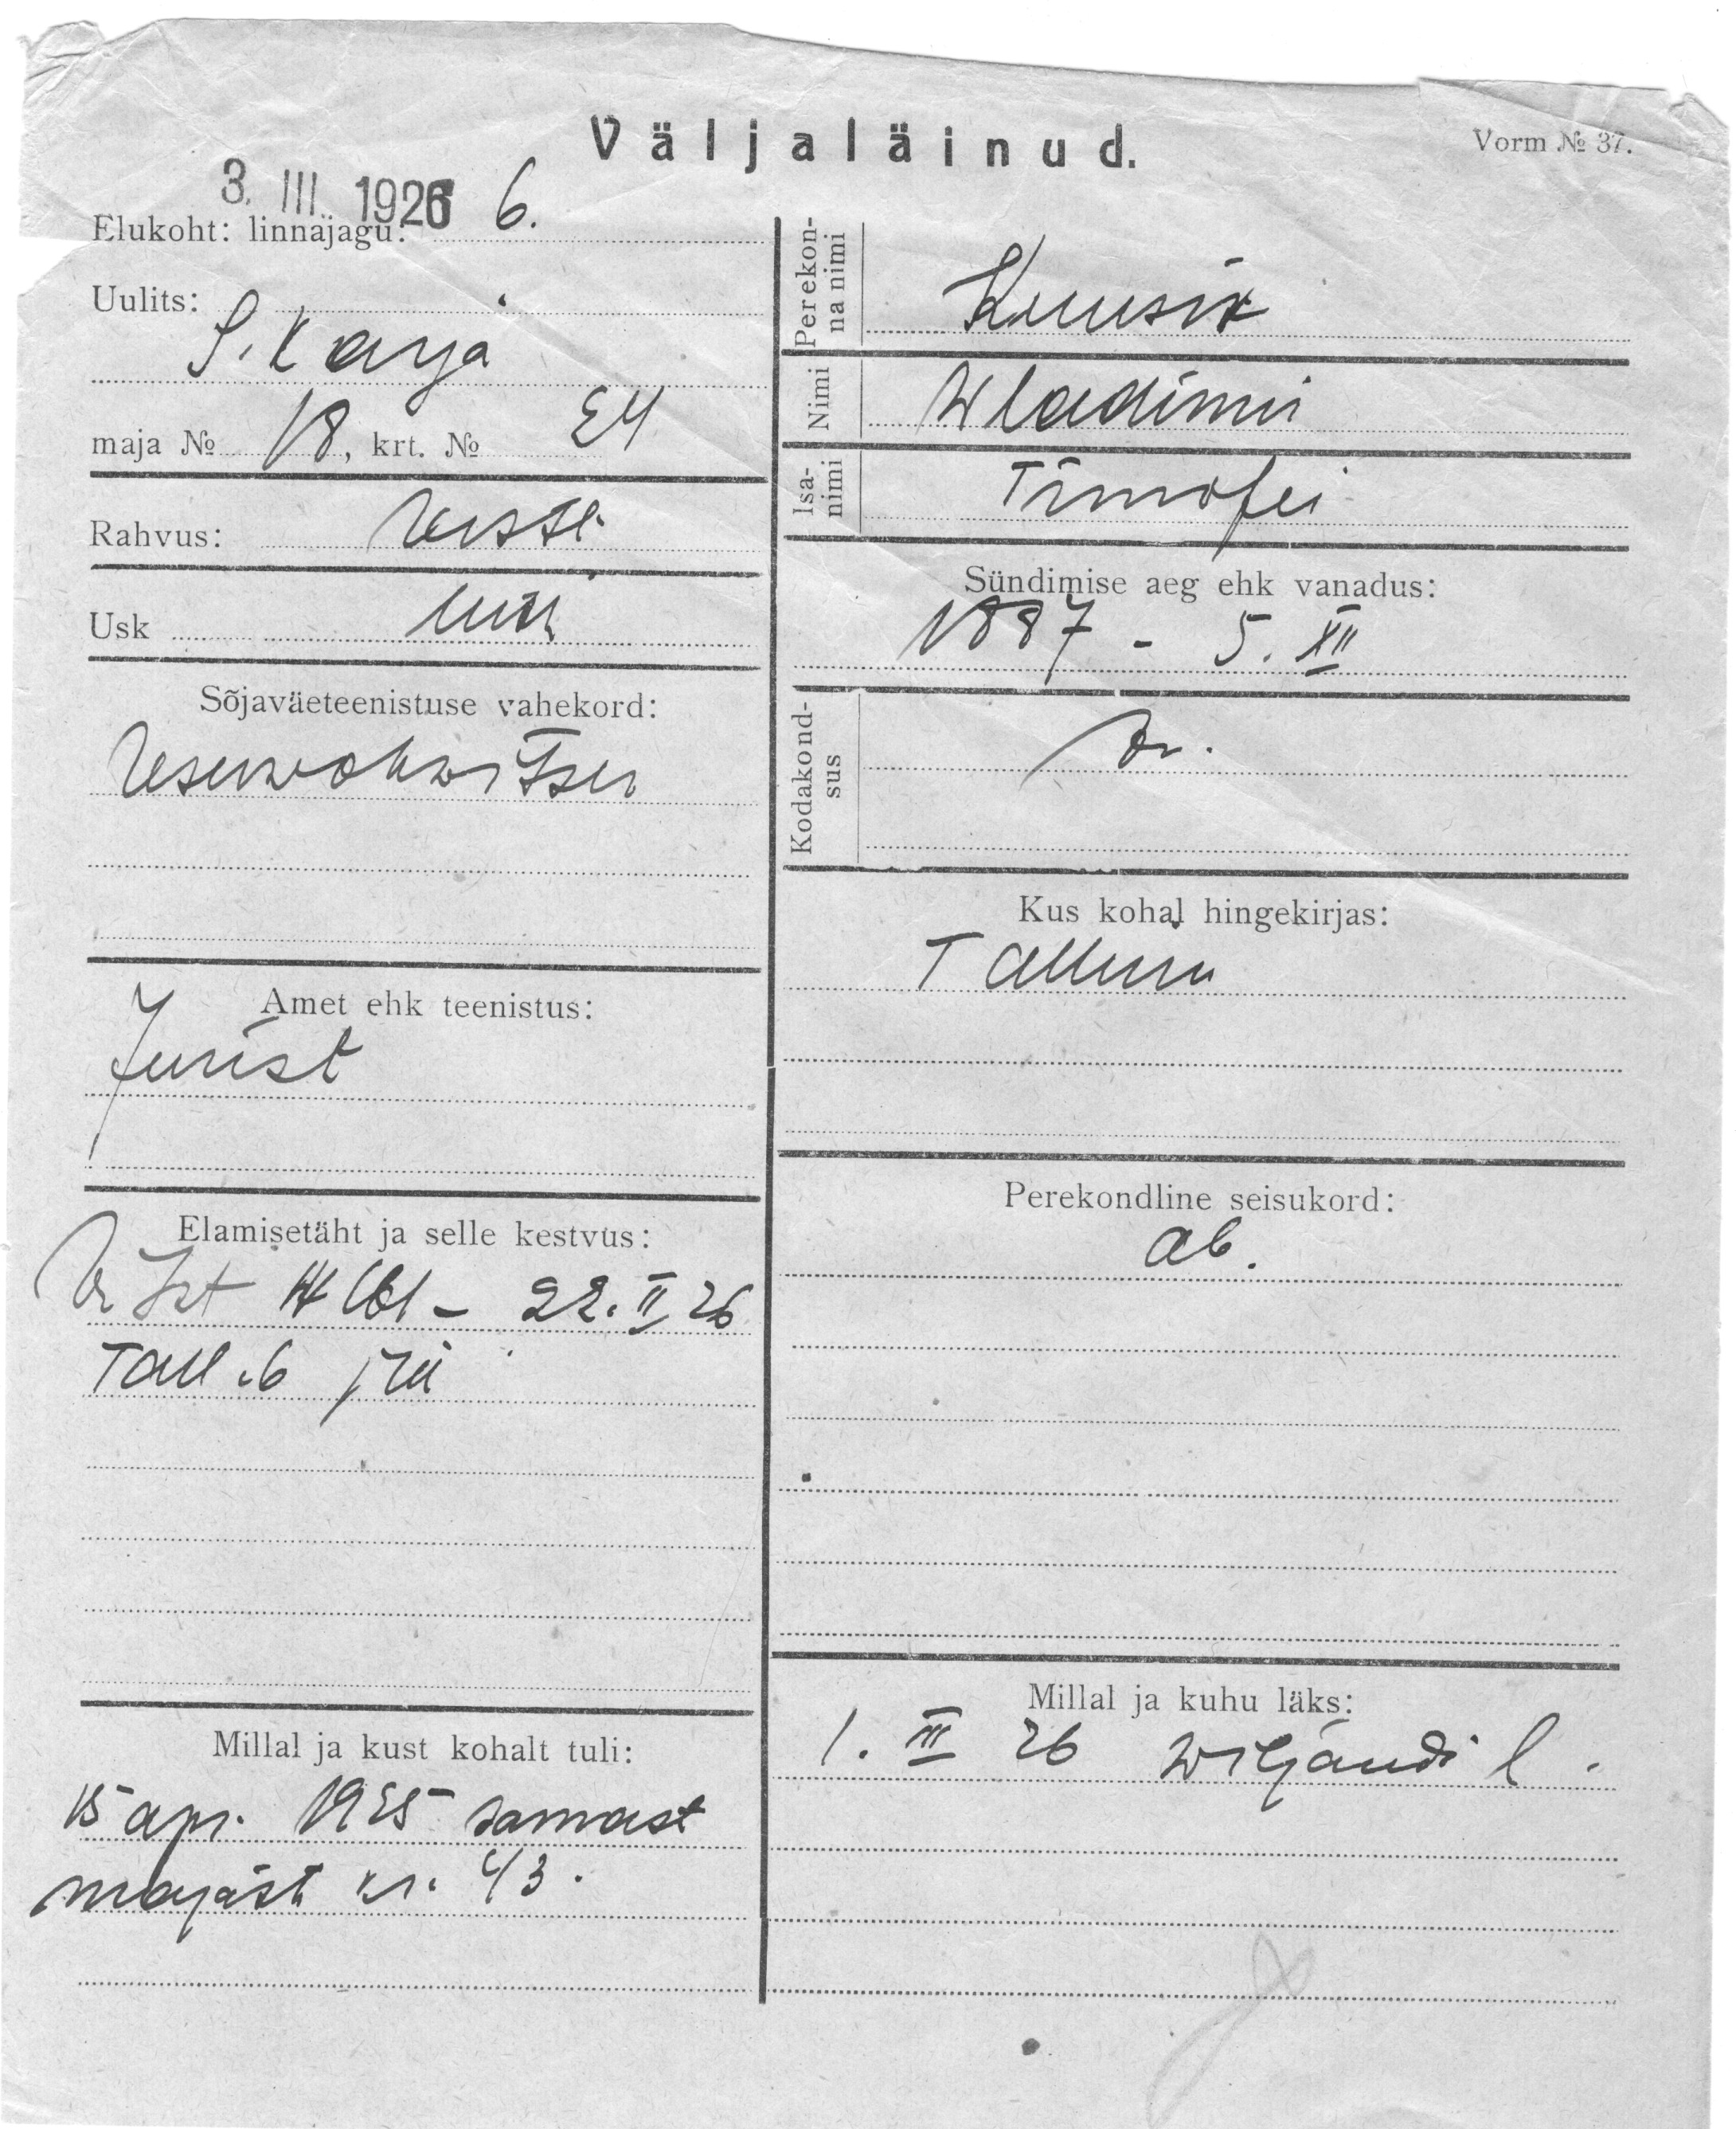 Väljaläinud.
Vorm № 37.
3. III 1926
Elukoht: linnajagu: 6.
Uulits:
S. Karja
maja № 18, krt. № 24
Rahvus: eestl.
Usk
Sõjaväeteenistuse vahekord:
Amet ehk teenistus:
Jurist
Elamisetäht ja selle kestvus:
22. II 26
Tall. 6 jsk
Millal ja kust kohalt tuli:
15 apr. 1925 samast
majast kr. 43.
Perekonna nimi
Kuusik
Nimi
Wladimir
Isanimi
Timofei
Sündimise aeg ehk vanadus:
1887 - 5. XII
Kodakondsus
Kus kohal hingekirjas:
Tallinn
Perekondline seisukord:
ab.
Millal ja kuhu läks:
1. III 26 Wiljandi l.